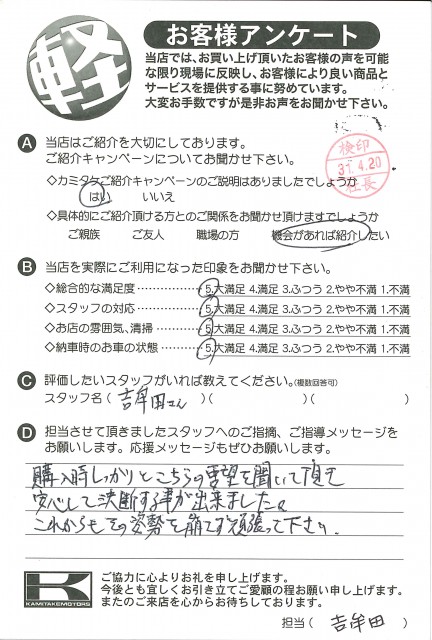 軽
お客様アンケート
当店では、お買い上げ頂いたお客様の声を可能
な限り現場に反映し、お客様により良い商品と
サービスを提供する事に努めています。
大変お手数ですが是非お声をお聞かせ下さい。
A 当店はご紹介を大切にしております。
ご紹介キャンペーンについてお聞かせ下さい。
検印
31.4.20
社長
◇カミタケご紹介キャンペーンのご説明はありましたでしょうか
はい いいえ
◇具体的にご紹介頂ける方とのご関係をお聞かせ頂けますでしょうか
ご親族 ご友人 職場の方 機会があれば紹介したい
B 当店を実際にご利用になった印象をお聞かせ下さい。
◇総合的な満足度 ・・・・・・・・・・・・・ 5.大満足 4.満足 3.ふつう 2.やや不満 1.不満
◇スタッフの対応 ・・・・・・・・・・・・・ 5.大満足 4.満足 3.ふつう 2.やや不満 1.不満
◇お店の雰囲気、清掃 ・・・・・・・・ 5.大満足 4.満足 3.ふつう 2.やや不満 1.不満
◇納車時のお車の状態 ・・・・・・・・ 5.大満足 4.満足 3.ふつう 2.やや不満 1.不満
C 評価したいスタッフがいれば教えてください。(複数回答可)
スタッフ名 ( 吉牟田さん )( )( )
D 担当させて頂きましたスタッフへのご指摘、ご指導メッセージを
お願いします。応援メッセージもぜひお願いします。
購入時しっかりとこちらの要望を聞いて頂き
安心して決断する事が出来ました。
これからもその姿勢を崩さず頑張って下さい。
K
KAMITAKEMOTORS
ご協力に心よりお礼を申し上げます。
今後とも宜しくお引き立てご愛顧の程お願い申し上げます。
またのご来店を心からお待ちしております。
担当 ( 吉牟田 )